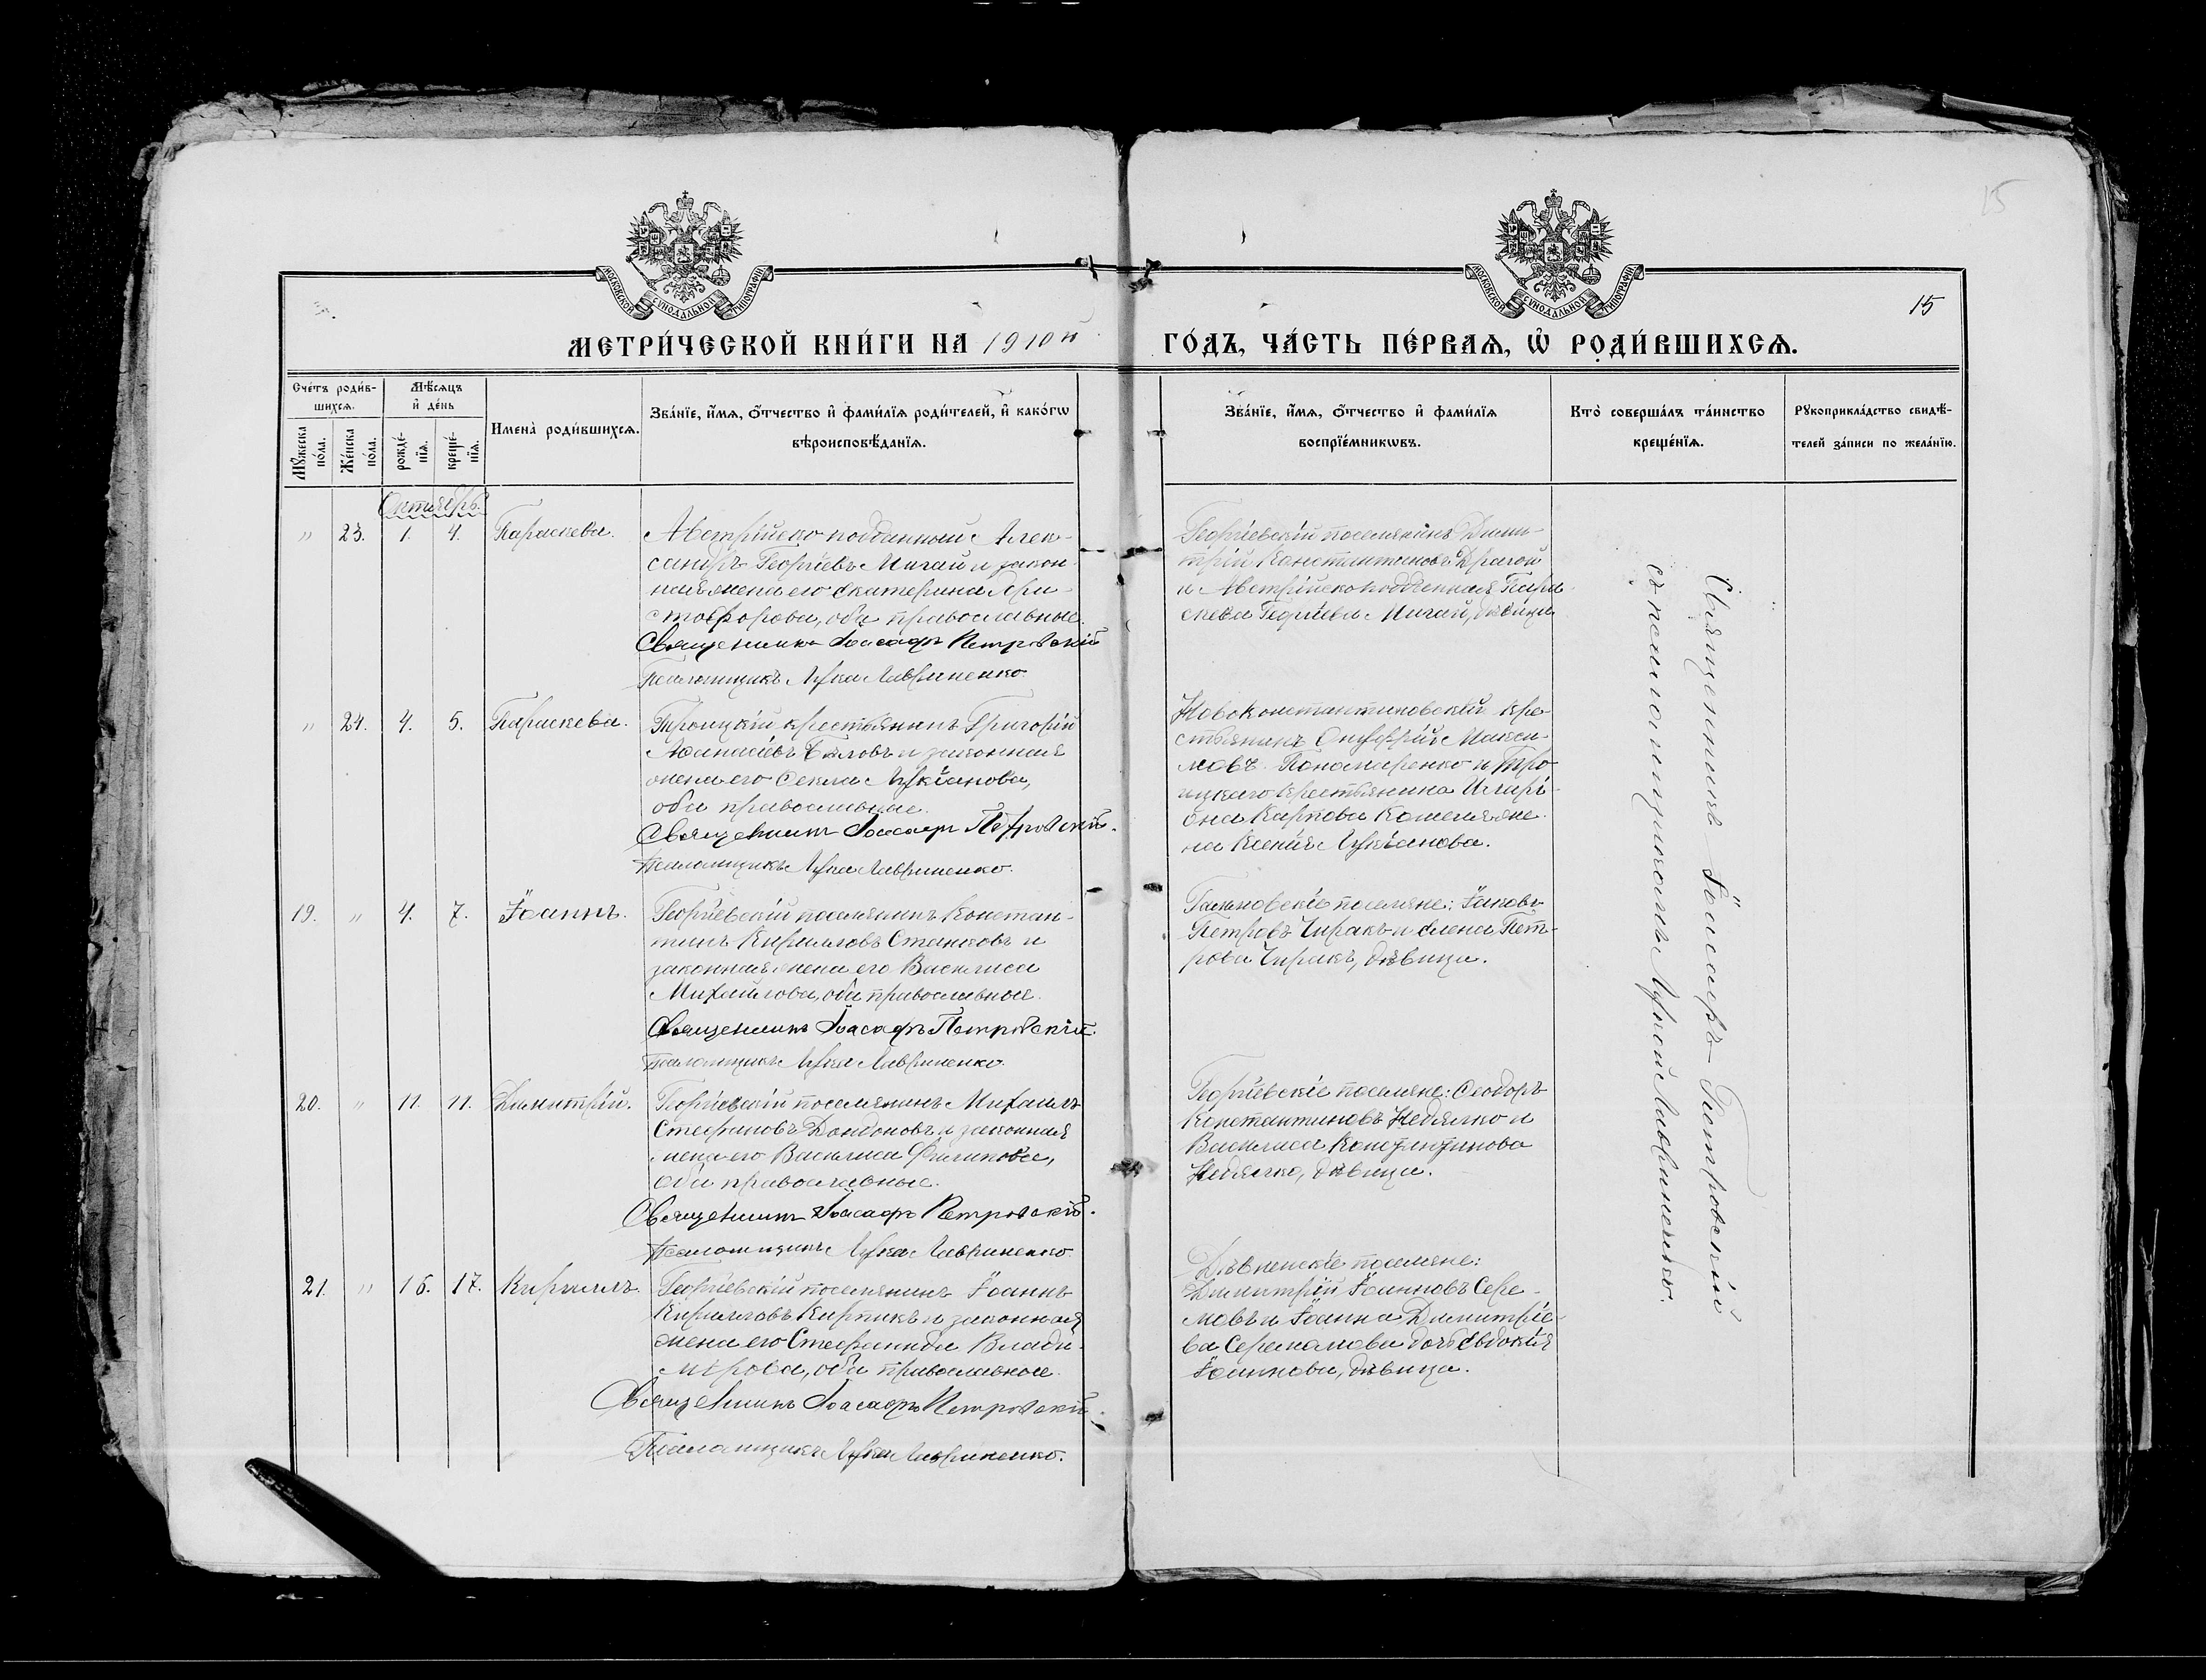 15
МОСКОВСКОЙ СѴНОДАЛЬНОЙ ТИПОГРАФІИ
МОСКОВСКОЙ СѴНОДАЛЬНОЙ ТИПОГРАФІИ
15
МЕТРИ́ЧЕСКОЙ КНИ́ГИ НА 1910й
ГО́ДЪ, ЧА́СТЬ ПЕ́РВАѦ, Ѡ҆ РОДИ́ВШИХСѦ.
Сче́тъ роди́в-
шихсѧ.
Мꙋ́жеска по́ла.
Же́нска по́ла.
Мѣ́сѧцъ
и҆ де́нь
рожде́-
нїѧ.
креще́-
нїѧ.
Имена̀ роди́вшихсѧ.
Зва́нїе, и҆́мѧ, ѻ҆́тчество и҆ фами́лїѧ роди́телей, и҆ како́гѡ
вѣроисповѣ́данїѧ.
Зва́нїе, и҆́мѧ, ѻ҆́тчество и҆ фами́лїѧ
воспрїе́мникѡвъ.
Кто̀ соверша́лъ та́инство
креще́нїѧ.
Рꙋкоприкла́дство свидѣ́-
телей за́писи по жела́нїю.
Октябрь.
" 23. 1. 4. Параскева.
Австрійско-подданный Алек-
сандръ Георгіевъ Мигай и закон-
ная жена его Екатерина Хри-
стофорова, оба православные.
Священникъ Іоасафъ Петровскій
Псаломщикъ Лука Лавриненко.
Георгіевскій поселянинъ Дими-
трій Константиновъ Драгой
и Австрійскоподданная Пара-
скева Георгіева Мигай, дѣвица
" 24. 4. 5. Параскева.
Троицкій крестьянинъ Григорій
Аѳанасіевъ Бѣловъ и законная
жена его Ѳекла Лукіанова,
оба православные.
Священникъ Іоасафъ Петровскій.
Псаломщикъ Лука Лавриненко.
Новоконстантиновскій кре-
стьянинъ Онуфрій Макси-
мовъ Пономаренко и Тро-
ицкаго крестьянина Илларі-
она Карпова жена
Ксенія Лукіанова.
19. " 4. 7. Іоаннъ.
Георгіевскій поселянинъ Констан-
тинъ Кирилловъ Станковъ и
законная жена его Василиса
Михайлова, оба православные.
Священникъ Іоасафъ Петровскій.
Псаломщикъ Лука Лавриненко.
поселяне: Іаковъ
Петровъ Чиракъ и Елена Пет-
рова Чиракъ, дѣвица.
20. " 11. 11. Димитрій.
Георгіевскій поселянинъ Михаилъ
Стефановъ Дондоновъ и законная
жена его Василиса Филипова,
оба православные.
Священникъ Іоасафъ Петровскій.
Псаломщикъ Лука Лавриненко.
Георгіевскіе поселяне: Ѳеодоръ
Константиновъ Недялко и
Василиса Константинова
Недялко, дѣвица.
21. " 16. 17. Кириллъ.
Георгіевскій поселянинъ Іоаннъ
Кирилловъ Киртикъ и законная
жена его Стефанида Влади-
мірова, оба православные.
Священникъ Іоасафъ Петровскій.
Псаломщикъ Лука Лавриненко.
Дѣвненскіе поселяне:
Димитрій Іоанновъ
и Іоанна Димитріе-
ва дочь Евдокія
Іоаннова, дѣвица.
Священникъ Іоасафъ Петровскій
съ псаломщикомъ Лукой Лавриненко.